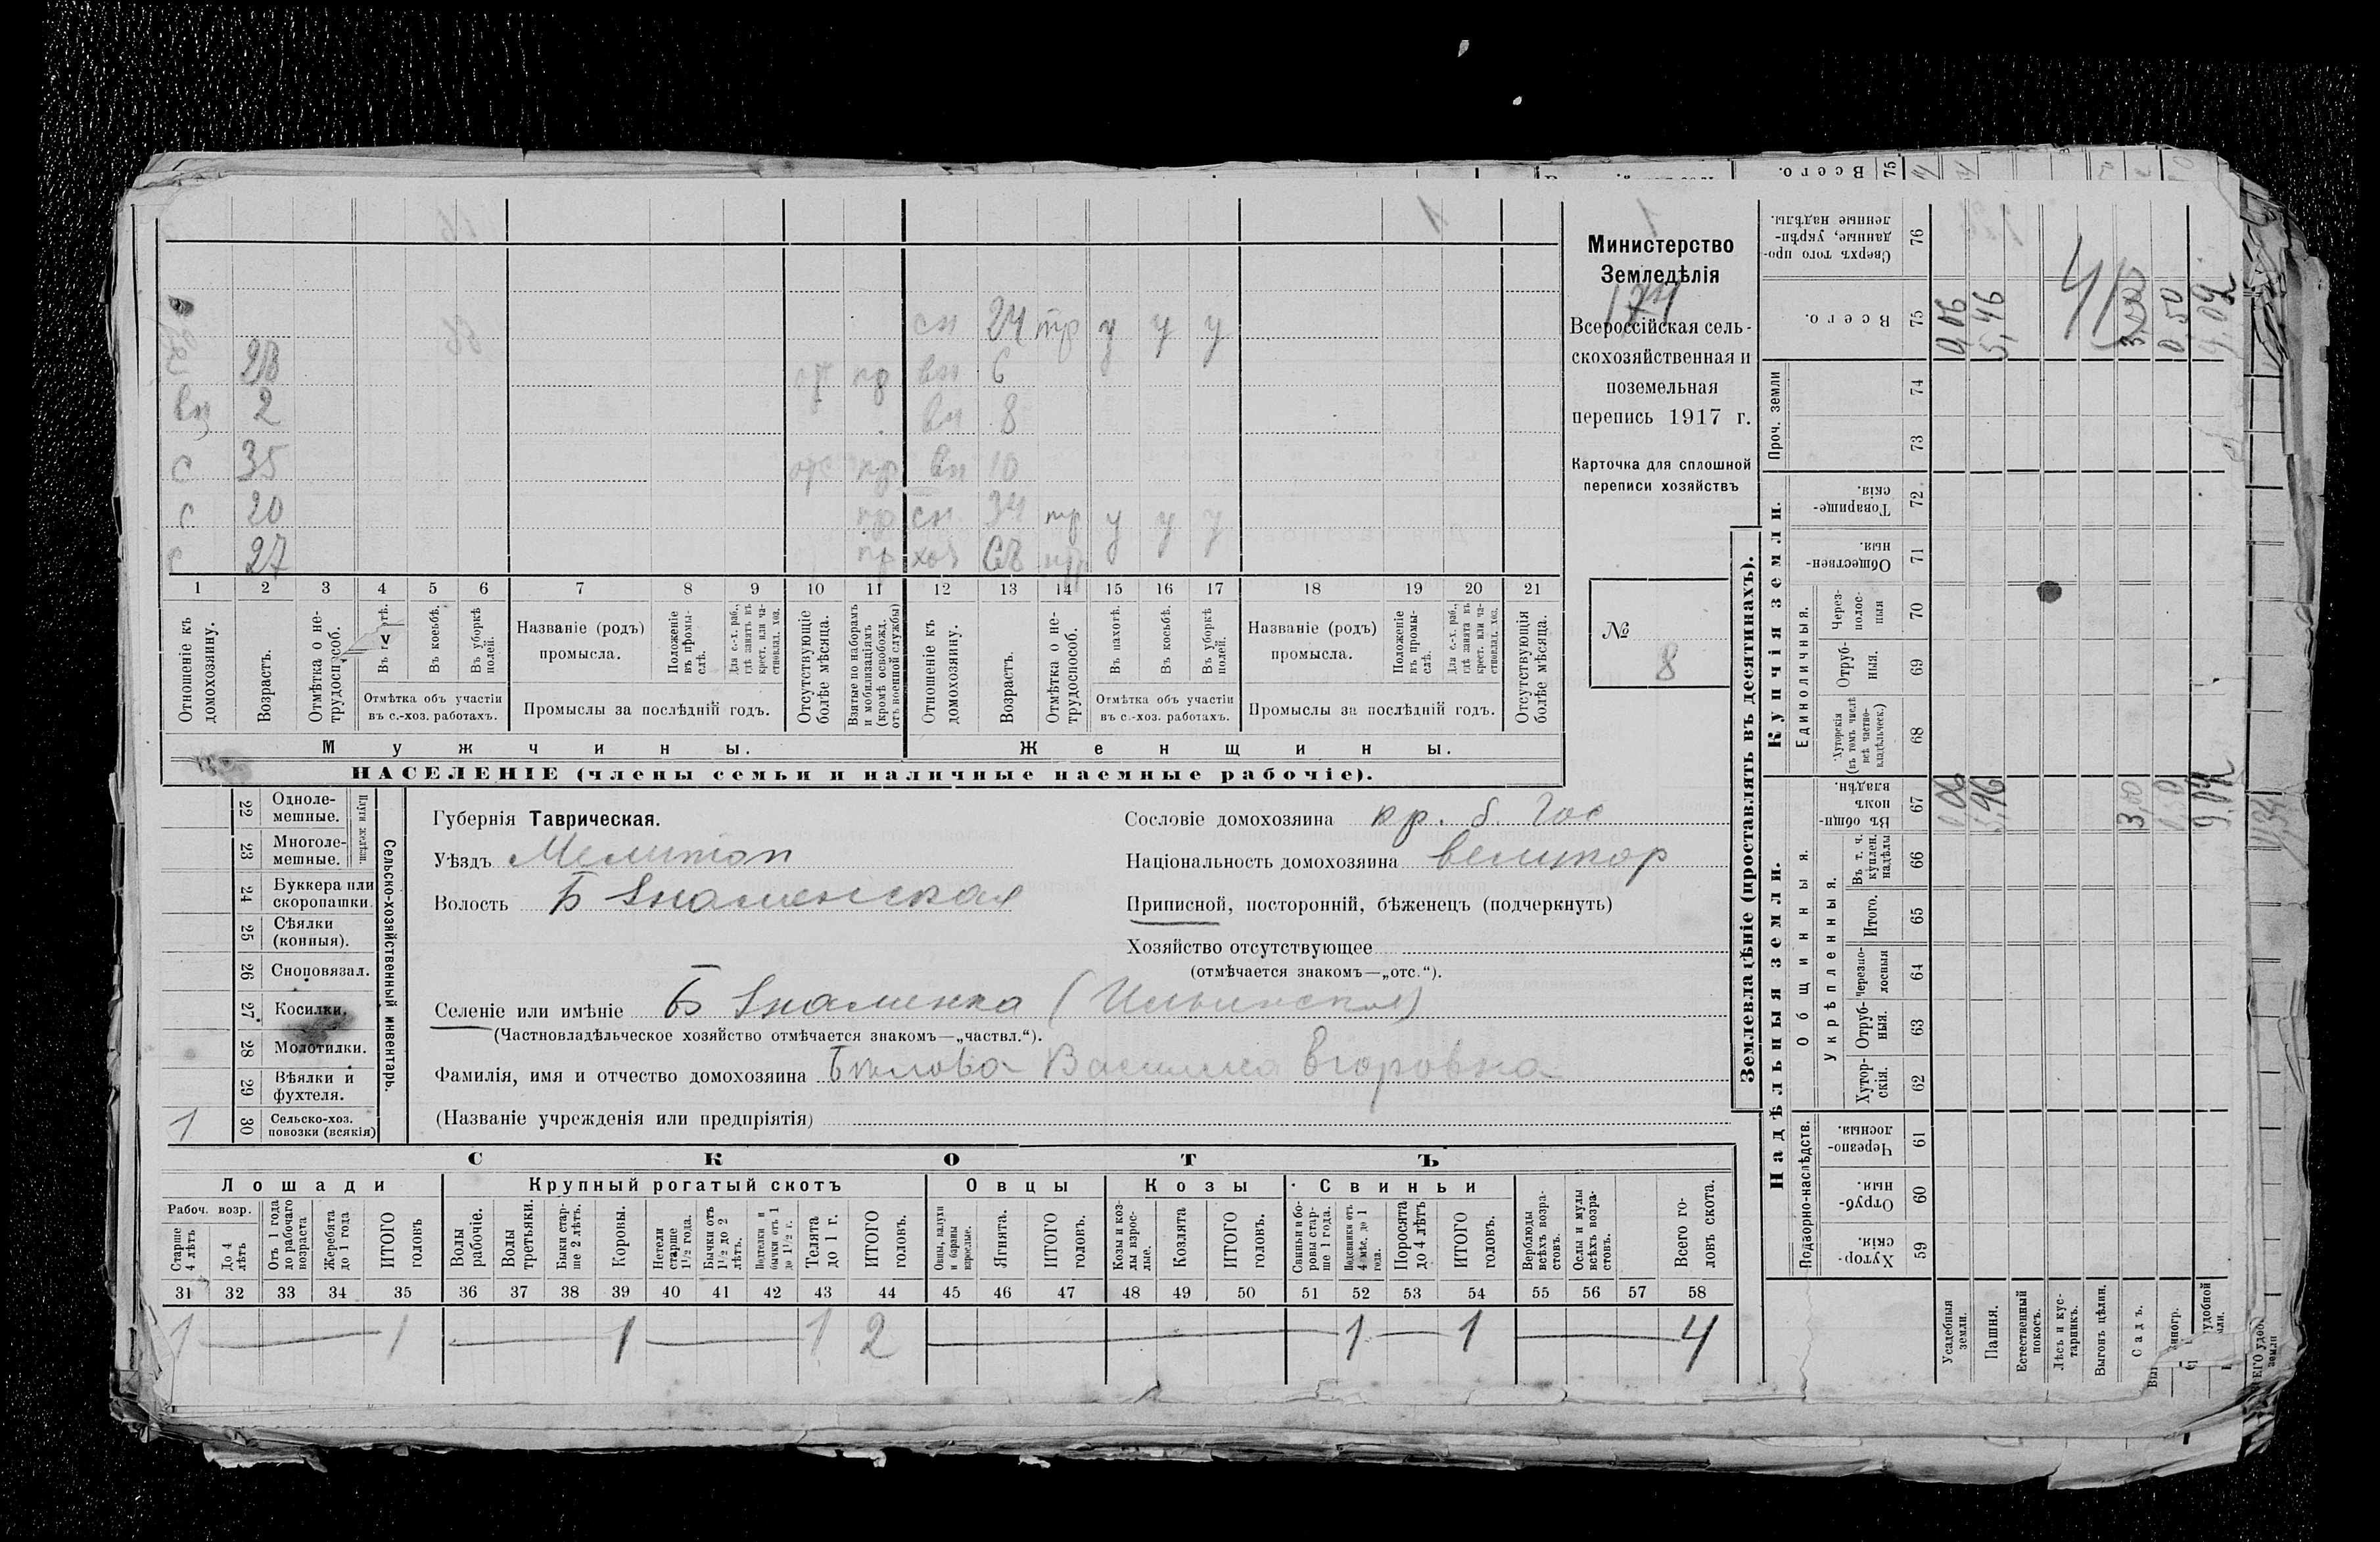 Министерство
Земледѣлія
174
Всероссійская сель-
скохозяйственная и
поземельная
перепись 1917 г.
Карточка для сплошной
переписи хозяйствъ
№
8
сн 24 тр у у у
28 пр вн 6
вн 2 вн 8
с 35 отс пр вн 10
с 20 пр сн 34 тр у у у
с 27 пр хоз 68 нт
1 2 3 4 5 6 7 8 9 10 11 12 13 14 15 16 17 18 19 20 21
Отношеніе къ домохозяину.
Возрастъ.
Отмѣтка о не-трудоспособ.
Въ косьбѣ.
Въ уборкѣ полей.
Отмѣтка объ участіи въ с.-хоз. работахъ.
Названіе (родъ) промысла.
Положеніе въ промы-слѣ.
Для с.-х. раб., гдѣ занятъ въ крест. или ча-стновлад. хоз.
Промыслы за послѣдній годъ.
Отсутствующіе болѣе мѣсяца.
Взятые по наборамъ и мобилизаціямъ (кромѣ освобожд. отъ военной службы)
Отношеніе къ домохозяину.
Возрастъ.
Отмѣтка о не-трудоспособ.
Въ пахотѣ.
Въ косьбѣ.
Въ уборкѣ полей.
Отмѣтка объ участіи въ с.-хоз. работахъ.
Названіе (родъ) промысла.
Положеніе въ промы-слѣ.
Для с.-х. раб., гдѣ занята въ крест. или ча-стновлад. хоз.
Промыслы за послѣдній годъ.
Отсутствующія болѣе мѣсяца.
Мужчины. Женщины.
НАСЕЛЕНІЕ (члены семьи и наличные наемные рабочіе).
Сельско-хозяйственный инвентарь.
Плуги желѣзн.
22 Одноле-мешные.
23 Многоле-мешные.
24 Буккера или скоропашки.
25 Сѣялки (конныя).
26 Сноповязал.
27 Косилки.
28 Молотилки.
29 Вѣялки и фухтеля.
1 30 Сельско-хоз. повозки (всякія)
Губернія Таврическая.
Уѣздъ Мелитоп
Волость Б Знаменская
Сословіе домохозяина кр. б. гос
Національность домохозяина великор
Приписной, посторонній, бѣженецъ (подчеркнуть)
Хозяйство отсутствующее
(отмѣчается знакомъ—„отс.“).
Селеніе или имѣніе Б Знаменка (Ильинская)
(Частновладѣльческое хозяйство отмѣчается знакомъ—„частвл.“).
Фамилія, имя и отчество домохозяина Бѣлова Василиса Егоровна
(Названіе учрежденія или предпріятія)
СКОТЪ
Лошади Крупный рогатый скотъ Овцы Козы Свиньи
Рабоч. возр.
Старше 4 лѣтъ
До 4 лѣтъ
Отъ 1 года до рабочаго возраста
Жеребята до 1 года
ИТОГО головъ
Волы рабочіе.
Волы третьяки.
Быки стар-ше 2 лѣтъ.
Коровы.
Нетели старше 1½ года.
Бычки отъ 1½ до 2 лѣтъ.
Подтелки и бычки отъ 1 до 1½ г.
Телята до 1 г.
ИТОГО головъ.
Овцы, валухи и бараны взрослые.
Ягнята.
ИТОГО головъ.
Козы и коз-лы взрос-лые.
Козлята
ИТОГО головъ.
Свиньи и бо-ровы стар-ше 1 года.
Подсвинки отъ 4 мѣс. до 1 года.
Поросята до 4 лѣтъ
ИТОГО головъ.
Верблюды всѣхъ возра-стовъ.
Ослы и мулы всѣхъ возра-стовъ.
Всего го-ловъ скота.
31 32 33 34 35 36 37 38 39 40 41 42 43 44 45 46 47 48 49 50 51 52 53 54 55 56 57 58
1 1 1 1 2 1 1 4
Землевладѣніе (проставлять въ десятинахъ).
Надѣльныя земли. Купчія земли. Проч. земли
Подворно-наслѣдств.
Общинныя.
Укрѣпленныя.
Единоличныя.
59 Хутор-скія.
60 Отруб-ныя.
61 Черезпо-лосныя.
62 Хутор-скія.
63 Отруб-ныя.
64 Черезпо-лосныя
65 Итого.
66 Въ т. ч. куплен. надѣлы
67 Въ общи-номъ владѣн.
68 Хуторскія (въ томъ числѣ всѣ частно-владѣльческ.)
69 Отруб-ныя.
70 Через-полос-ныя
71 Обществен-ныя.
72 Товарище-скія.
73
74
75 Всего.
76 Сверхъ того про-данные, укрѣп-ленные надѣлы.
Усадебныя земли. 0,06 0,06
Пашня. 5,46 5,46
Естественный покосъ.
Лѣсъ и кус-тарникъ.
Выгонъ цѣлин.
Садъ. 3,00 3,00
0,50 0,50
9,02 9,02
Всего. 75